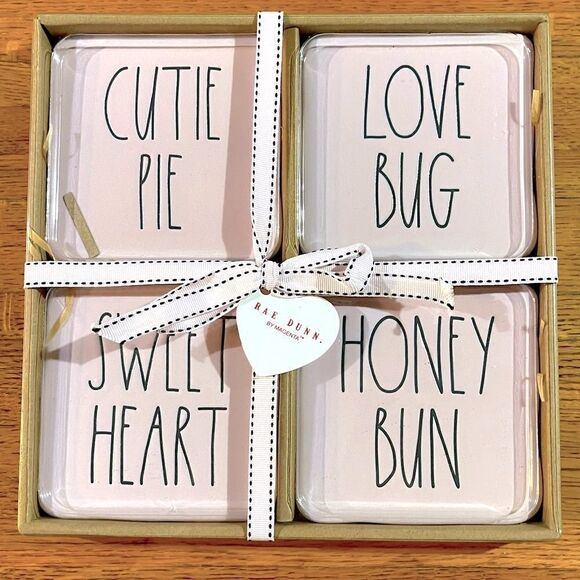 CUTIE
PIE
LOVE
BUG
RAE DUNN.
BY MAGENTA™
SWEET
HEART
HONEY
BUN